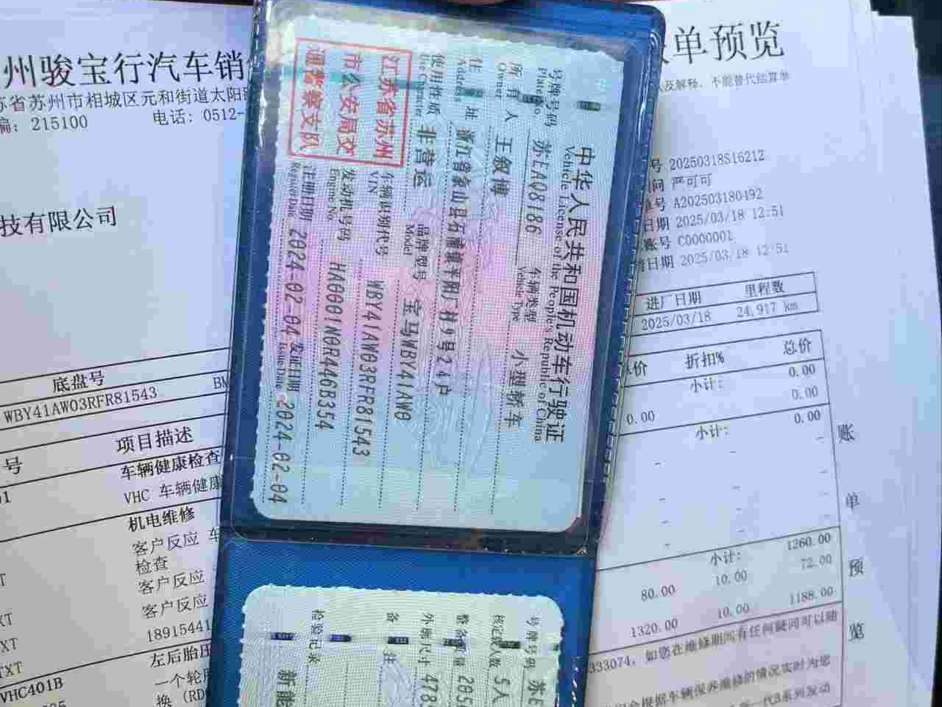 州骏宝行汽车销
苏省苏州市相城区元和街道太阳路
编: 215100
电话: 0512-
技有限公司
底盘号
WBY41AW03RFR81543
BM
号
项目描述
01
车辆健康检查
VHC 车辆健康
机电维修
客户反应 车
检查
客户反应
TXT
客户反应
TXT
18915441
TXT
左后胎压
VHC401B
一个轮
换 (RD
中华人民共和国机动车行驶证
Vehicle License of the People's Republic of China
号牌号码 苏EAQ8186 车辆类型 小型轿车
Plate No. Vehicle Type
所有人 王叙博
Owner
住址 浙江省象山县石浦镇平阳厂村9号24户
Address
使用性质 非营运 品牌型号 宝马WBY41AW0
Use Character Model
江苏省苏州
市公安局交
通警察支队
车辆识别代号 WBY41AW03RFR81543
VIN
发动机号码 HA0001N0R446B354
Engine No.
注册日期 2024-02-04 发证日期 2024-02-04
Register Date Issue Date
号牌号码 苏E
核定载人数 5人
整备质量 205
外廓尺寸 478
备注
检验记录
新能
单预览
及解释，不能替代结算单
号 20250318S16212
问 严可可
单号 A202503180492
日期 2025/03/18 12:51
账号 C0000001
日期 2025/03/18 12:51
进厂日期 里程数
2025/03/18 24,917 km
价 折扣% 总价
小计: 0.00
0.00 0.00
小计: 0.00
小计: 1260.00
80.00 10.00 72.00
1320.00 10.00 1188.00
333074, 如您在维修期间有任何疑问可以随
会根据车辆保养维修的情况实时为您
一代3系列发动
账
单
预
览